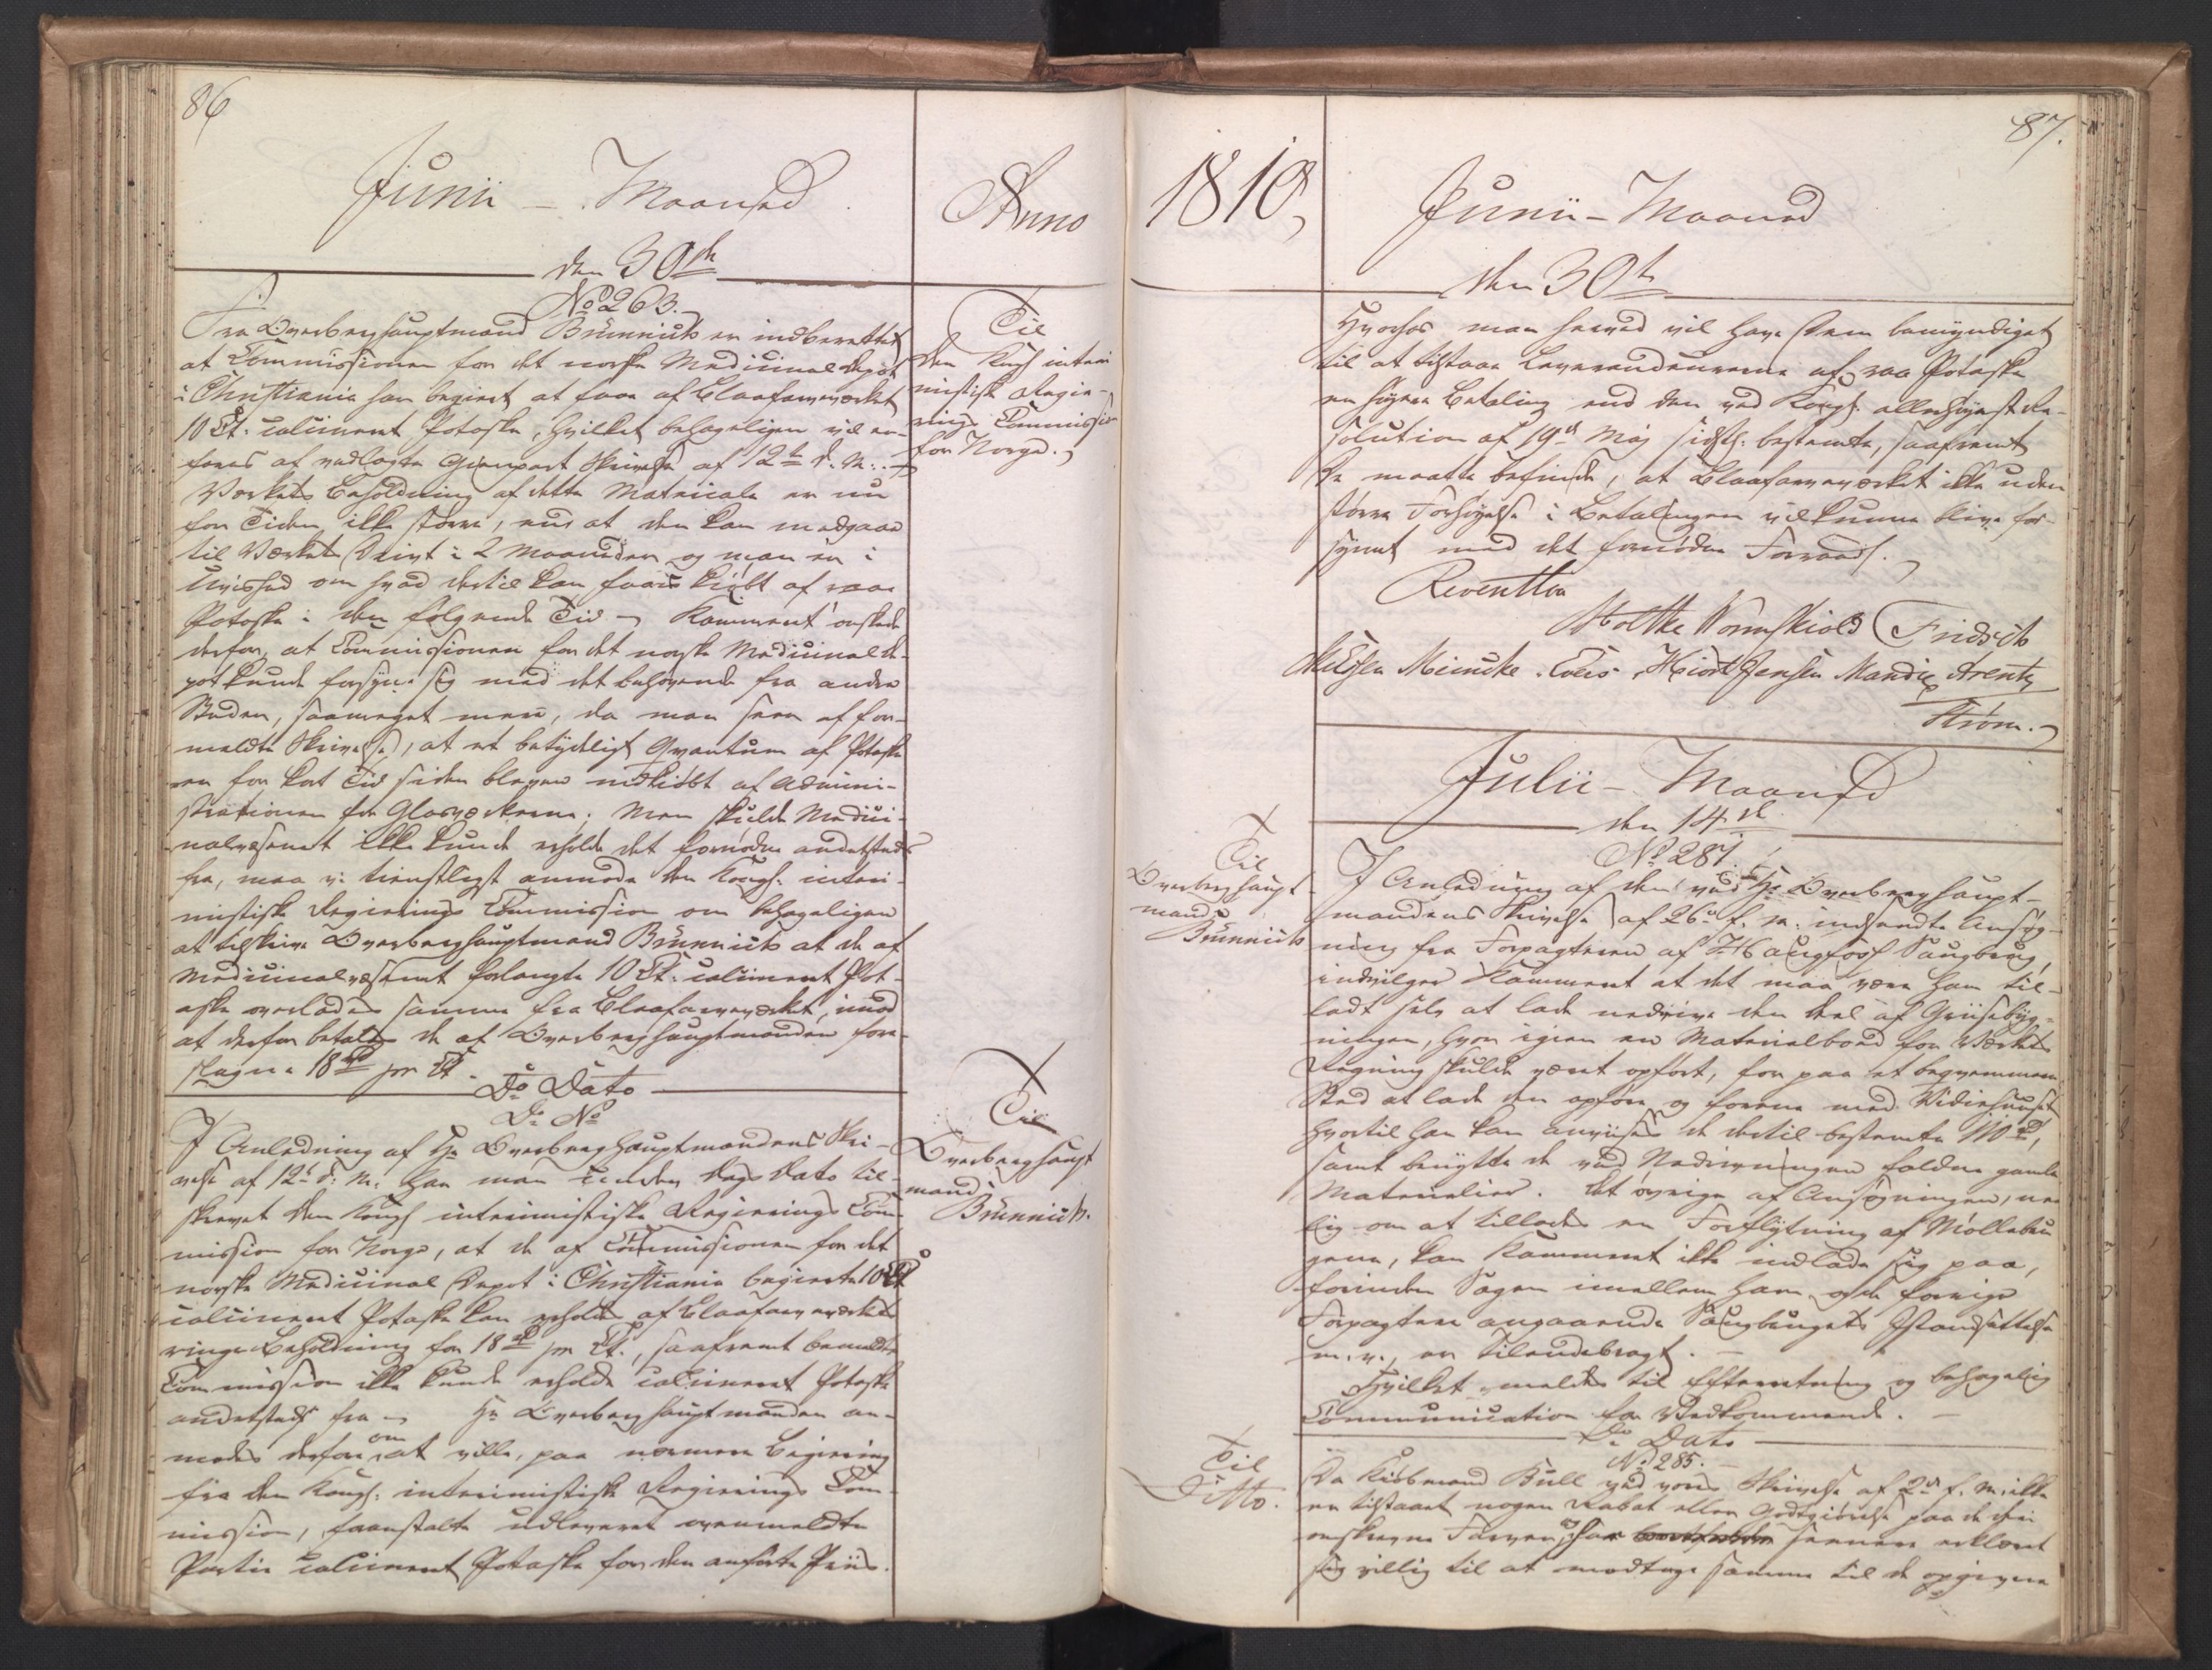 86
Junii – Maaned
den 30th
No 263.
Fra Overberghauptmand Brünnich er indberettet
at Commissionen for det norske Medicinaldepot
i Christiania har begiert at faae af Blaafarveværket
10 Ct. calcineret Potaske, hvilket behageligen vil er-
fares af vedlagte Gienpart Skrivelse af 12te d. M.
Værkets Beholdning af dette Materiale er nu
for Tiden ikke større, end at den kan medgaae
til Værkets Drivt i 2 Maaneder og man er i
Uvished om hvad dertil kan faaes kiøbt af raa
Potaske i den følgende Tid Kammeret ønskede
derfor, at Commissionen for det norske Medicinalde-
pot kunde forsyne sig med det behøvende fra andre
Steder, saameget mere, da man seer af for-
meldte Skrivelse, at et betydeligt Qvantum af Potaske
er for kort Tid siden bleven indkiøbt af Admini-
strationen for Glasværkerne; Men skulde Medici-
nalvæsenet ikke kunde erholde det fornødne andetsteds
fra, maa vi tienstligst anmode den Kongl. interi-
mistiske Regierings Commission om behageligen
at tilskrive Overberghauptmand Brünnich at de af
Medicinalvæsenet forlangte 10 Ct. calcineret Pot-
aske overlades samme fra Blaafarveværket, imod
at derfor betales de af Overberghauptmanden fore-
slagne 18 rd pr Ct.
Do Dato
Do No
I Anledning af Hr Overberghauptmandens Skri-
velse af 12te d. M. har man under Dags Dato til-
skrevet den Kongl interimistiske Regierings Com-
mission for Norge, at de af Commissionen for det
norske Medicinal Depot i Christiania begierte 10 Ct
calcineret Potaske kan erholdes af Blaafarveværkets
ringe Beholdning for 18 rd pr Ct., saafremt bemeldte
Commission ikke kunde erholde calcineret Potaske
andetsteds fra Hr Overberghauptmanden an-
modes derfor om at ville, paa nærmere Begiering
fra den Kongl. interimistiske Regierings Com-
mission, foranstalte udleveret ovenmeldte
Partie calcineret Potaske for den anførte Priis.
Anno
Til
den Kongl interi
mistiske Regie-
rings Commission
for Norge.
Til
Overberghaupt
mand
Brünnich.
1810,
87.
Junii – Maaned
den 30th
Hvorhos man herved vil have Dem bemyndiget
til at tilstaae Leverandeurerne af raa Potaske
en høyere Betaling end den ved Kongl. allerhøyeste Re-
solution af 19de May sidstl. bestemte, saafremt
De maatte befinde, at Blaafarveværket ikke uden
større Forhøyelse i Betalingen vil kunne blive for-
synet med det fornødne Forraad.
Reventlou
Moltke Wormskiold Fridsch
Meincke Hiort Jensen Mandix Arentz
Strøm.
Julii – Maaned
den 14de
No 287.
Til
Overberghaupt
mand
Brünnich
I Anledning af den ved Hr Overberghaupt-
mandens Skrivelse af 26de f. M. indsendte Ansøg-
ning fra Forpagteren af Haugfoss Saugbrug,
indvilger Kammeret at det maa være ham til-
ladt selv at lade nedrive den Deel af Grüsebyg-
ningen, hvor igien en Materialbod for Værkets
Regning skulde været opført, for paa et beqvemmere
Sted at lade den opføre og forene med
hvortil han kan anvises de dertil bestemte
samt benytte de ved Nedrivningen faldne gamle
Materialier. Det øvrige af Ansøgningen, nem
lig om at tillades en Forflytning af Møllebru
gene, kan Kammeret ikke indlade sig paa,
forinden Sagen imellem ham og de forrige
Forpagtere angaaende Saugbrugets Istandsættelse
m. v. er tilendebragt.
Hvilket meldes til Efterretning og behagelig
Communication for Vedkommende.
Do Dato
No 285.
Til
Ditto.
Da Kiøbmand Bull ved vores Skrivelse af 2den f. M. ikke
er tilstaaet nogen Rabat eller Godtgiørelse paa de ham
Farver, har senere erklæret
sig villig til at modtage samme til de opgivne